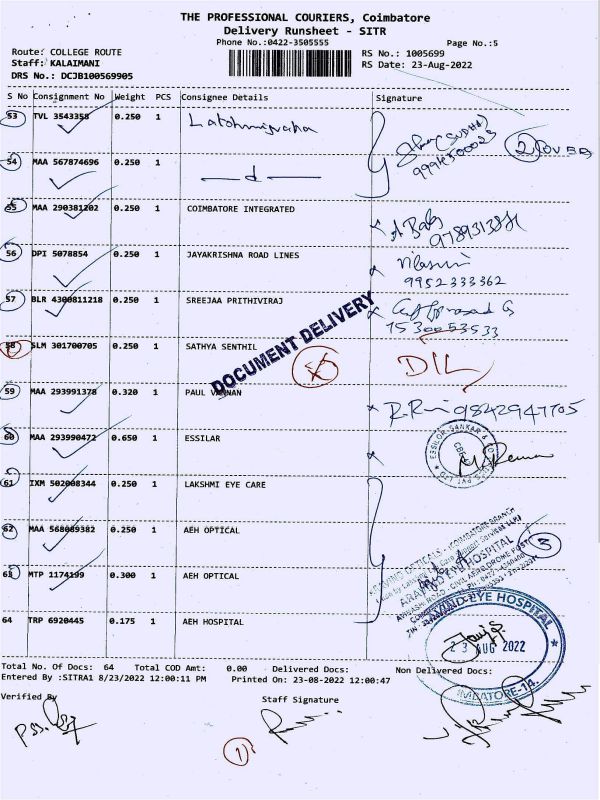 THE PROFESSIONAL COURIERS, Coimbatore
Delivery Runsheet - SITR
Phone No.:0422-3505555 Page No.:5
Route: COLLEGE ROUTE RS No.: 1005699
Staff: KALAIMANI RS Date: 23-Aug-2022
DRS No.: DCJB100569905
S No Consignment No Weight PCS Consignee Details Signature
53 TVL 3543358 0.250 1
54 MAA 567874696 0.250 1 — d —
55 MAA 290381202 0.250 1 COIMBATORE INTEGRATED
56 DPI 5078854 0.250 1 JAYAKRISHNA ROAD LINES
9952333362
57 BLR 4300811218 0.250 1 SREEJAA PRITHIVIRAJ
58 SLM 301700705 0.250 1 SATHYA SENTHIL
DOCUMENT DELIVERY
59 MAA 293991378 0.320 1 PAUL VANNAN
9842947705
60 MAA 293990472 0.650 1 ESSILAR
61 IXM 502008344 0.250 1 LAKSHMI EYE CARE
62 MAA 568089382 0.250 1 AEH OPTICAL
3
63 MTP 1174199 0.300 1 AEH OPTICAL
64 TRP 6920445 0.175 1 AEH HOSPITAL
EYE HOSPITAL
23 AUG 2022
Total No. Of Docs: 64 Total COD Amt: 0.00 Delivered Docs: Non Delivered Docs:
Entered By :SITRA1 8/23/2022 12:00:11 PM Printed On: 23-08-2022 12:00:47
Verified By Staff Signature
1